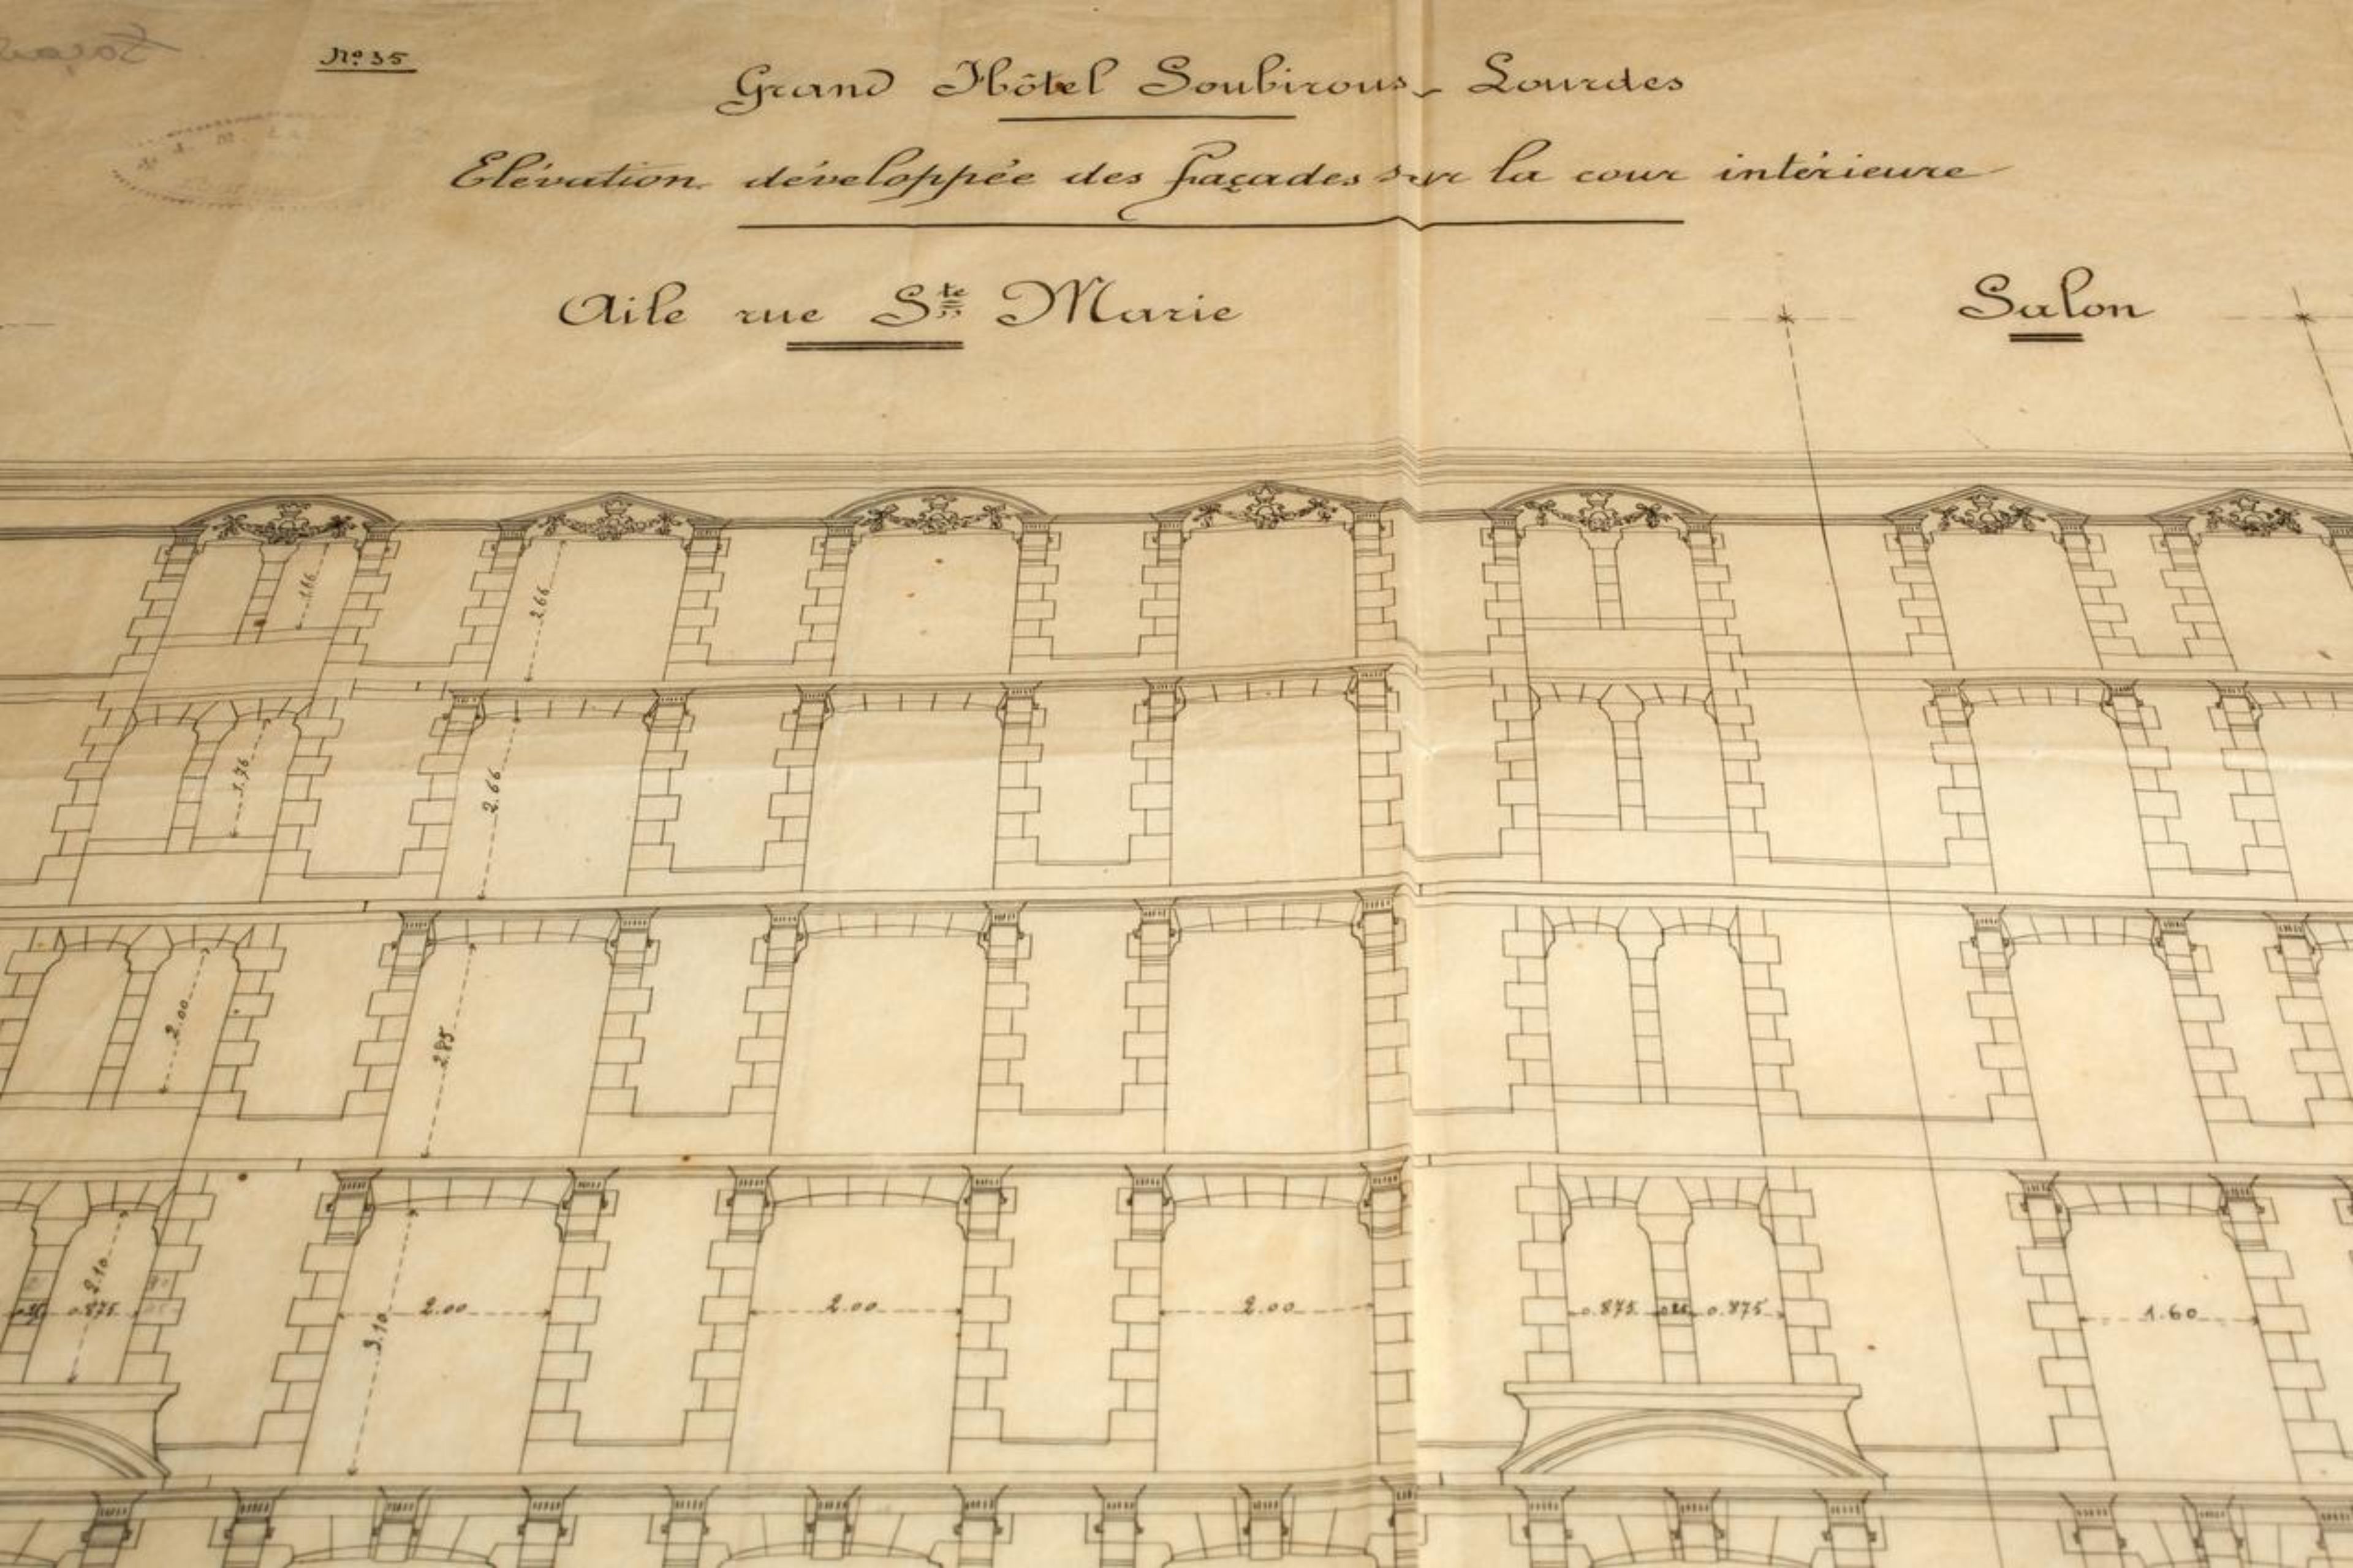 Nº 35
Grand Hôtel Soubirous - Lourdes
Elévation développée des façades sur la cour intérieure
Aile rue Ste Marie
Salon
1.16
2.66
1.76
2.66
2.00
2.85
2.10
3.10
0.875
2.00
2.00
2.00
0.875
0.875
1.60